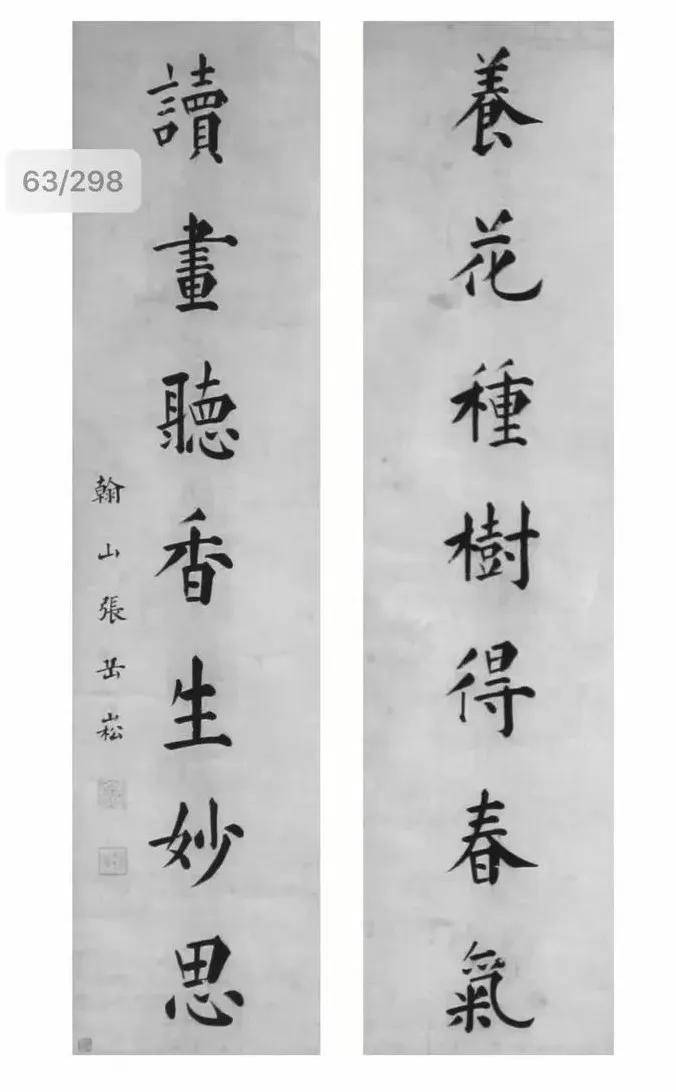 63/298
養花種樹得春氣
讀畫聽香生妙思
翰山張岳崧